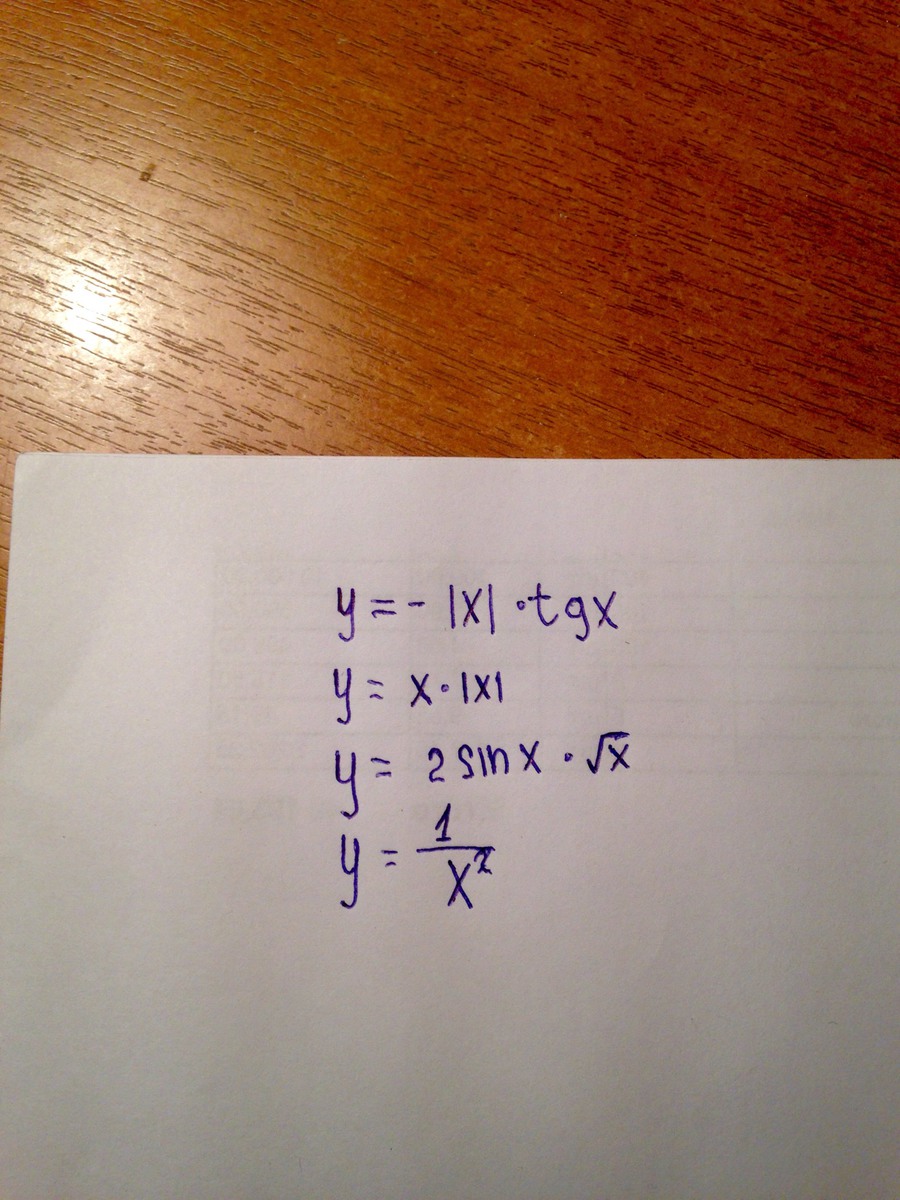 y = - |x| · tgx
y = x · |x|
y = 2 sin x · √x
y = 1/x²